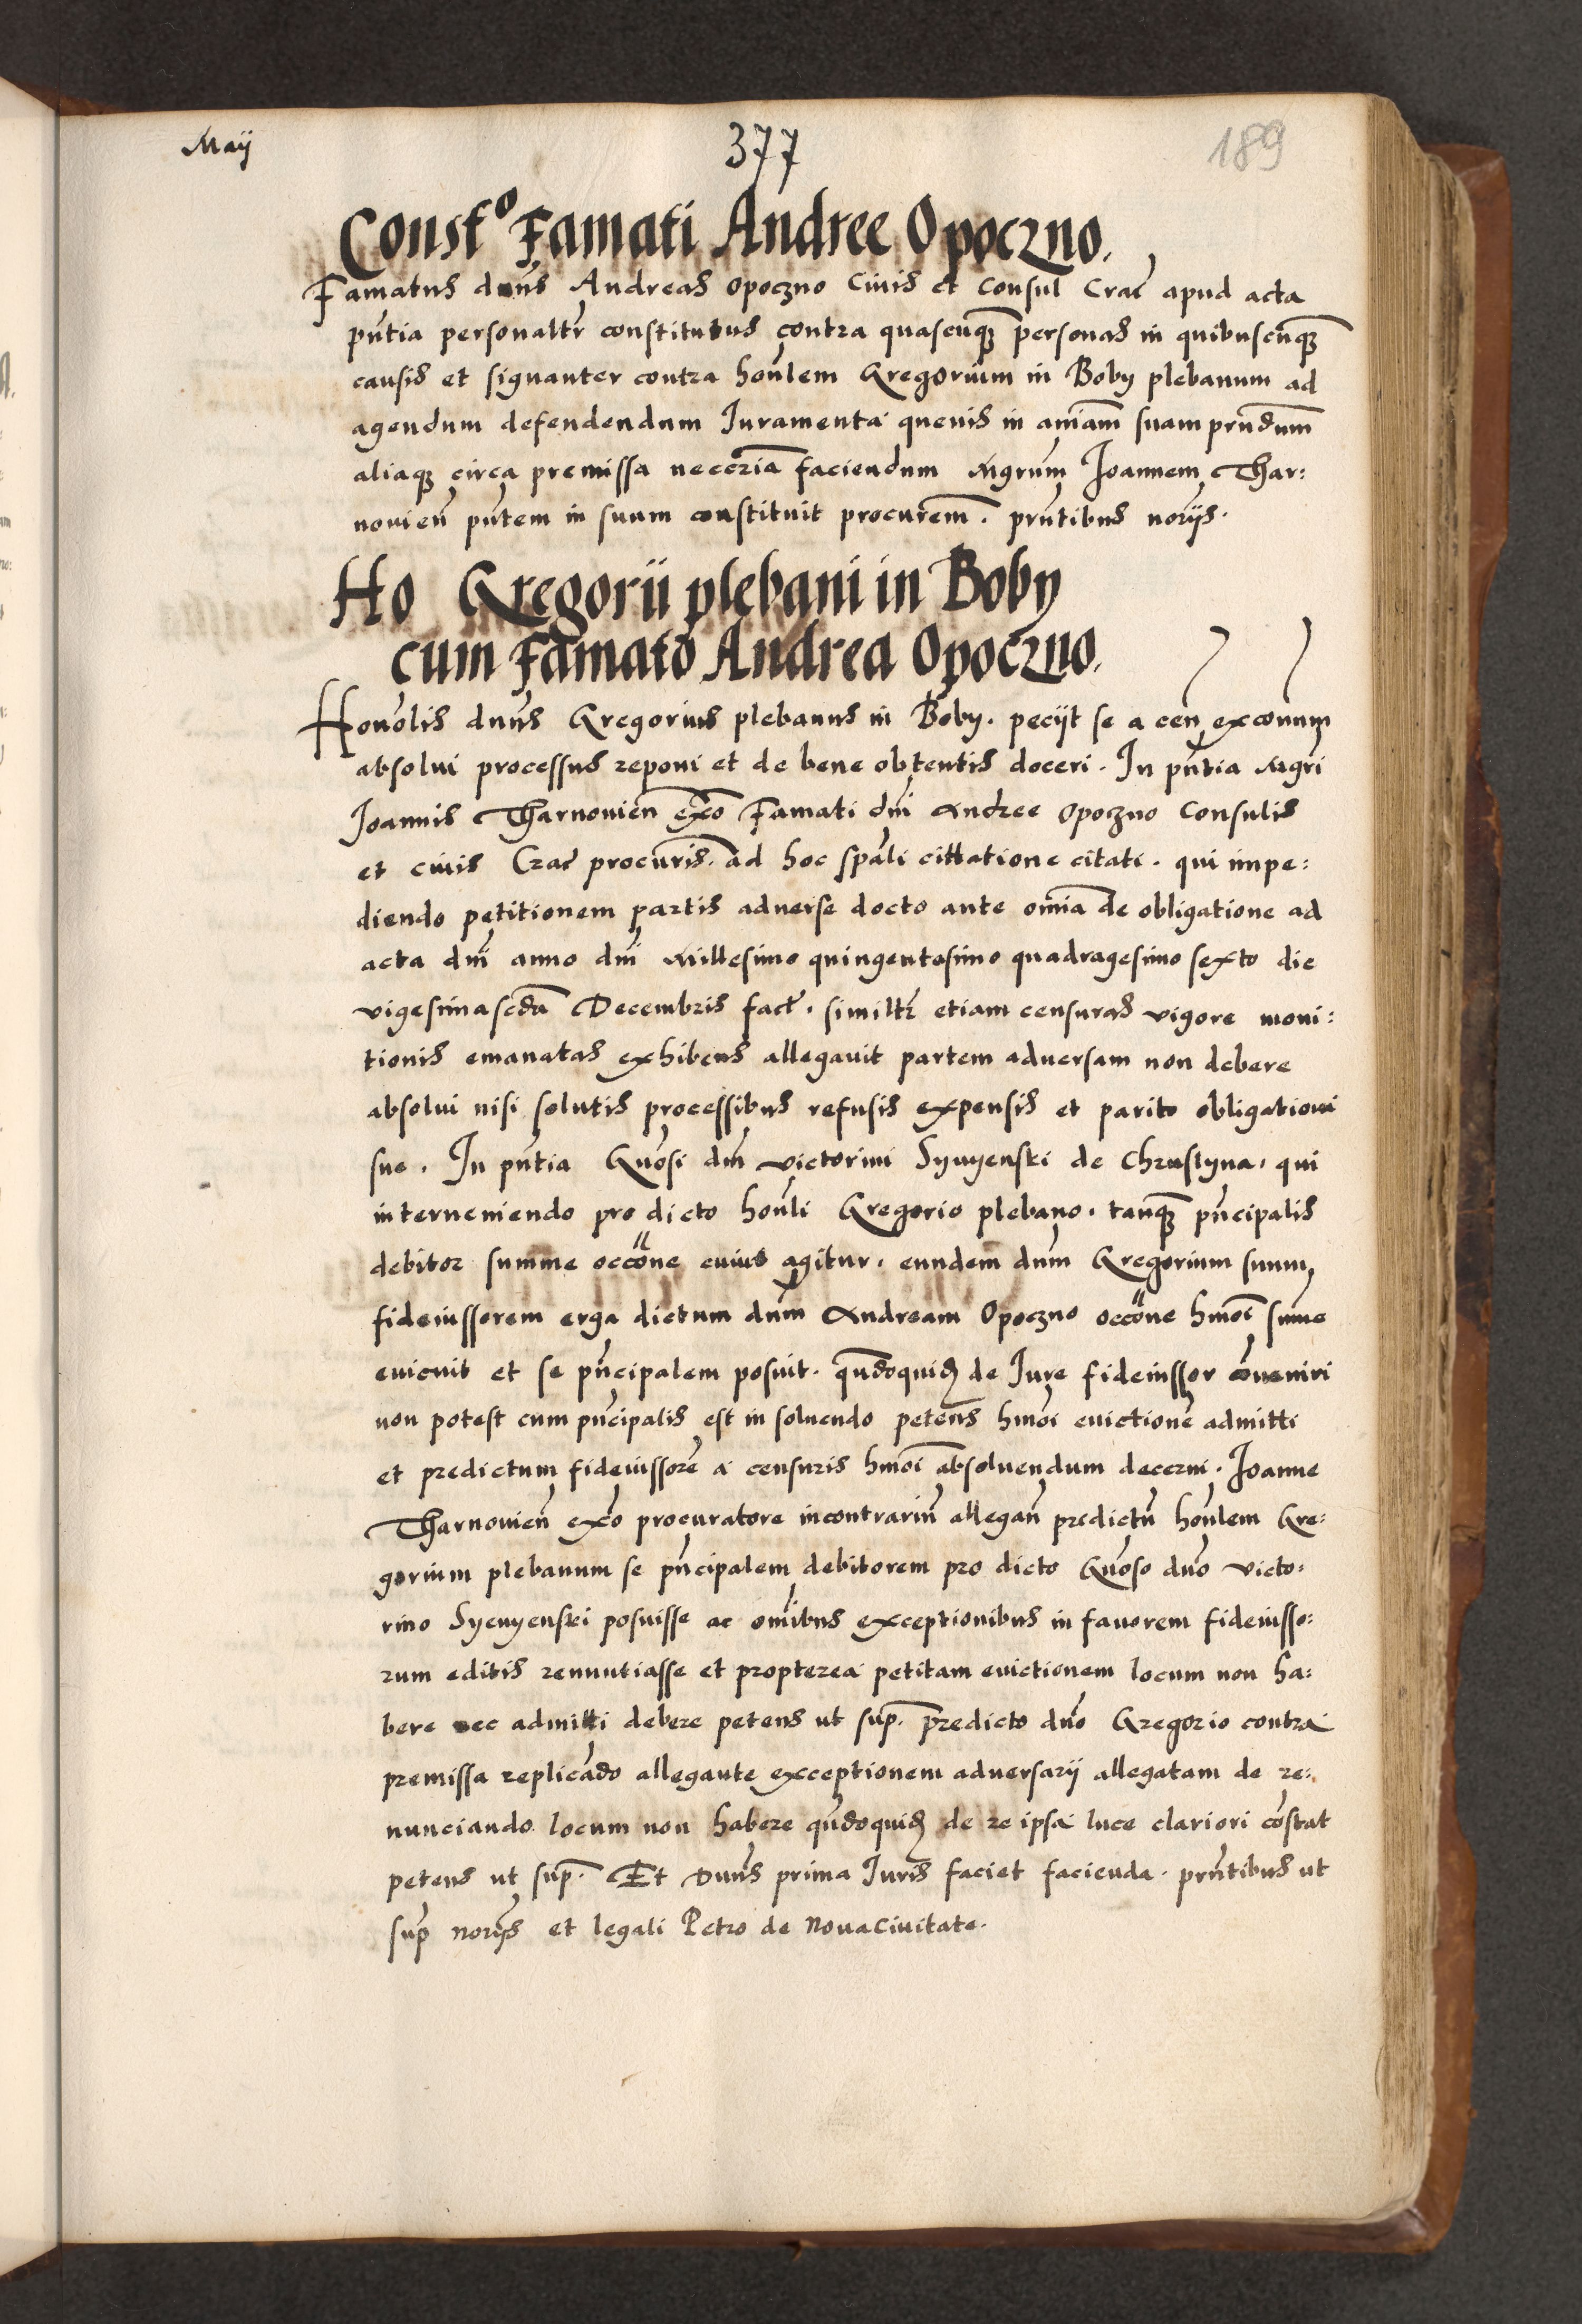 Maij
377
189
Const<sup>o</sup> Famati Andree Opoczno.
Famatus dn̄s Andreas Opoczno Ciuis et Consul Crac̄ apud acta
pn̄tia personaltr̄ constitutus contra quascūqꝫ personas in quibuscūqꝫ
causis et signanter contra honl̄em Gregorium in Boby plebanum ad
agendum defendendum Iuramenta queuis in aīam suam prn̄dum
aliaqꝫ circa premissa necc̄ria faciendum Mgrūm Joannem Thar:
nouien̄ pn̄tem in suum constituit procur̄em. prn̄tibus nor̄ijs.
Ho Gregorii plebani in Boby
cum Famato Andrea Opoczno.
Honōlis dnūs Gregorius plebanus in Boby. pecijt se a cen̄ exconum
absolui processus reponi et de bene obtentis doceri. In pn̄tia Mgri
Joannis Tharnouien̄ ex̄o Famati dn̄i Andree Opoczno Consulis
et ciuis Crac̄ procur̄is. ad hoc spāli cittatione citati. qui impe:
diendo petitionem partis aduerse docto ante om̄ia de obligatione ad
acta dn̄i anno dn̄i Millesimo quingentesimo quadragesimo sexto die
vigesimascd̄a Decembris fact̄. similtr̄ etiam censuras vigore moni:
tionis emanatas exhibens allegauit partem aduersam non debere
absolui nisi solutis processibus refusis expensis et parito obligationi
sue. In pn̄tia Gn̄osi dn̄i Victorini Syenyenski de Chrustyna. qui
interueniendo pro dicto honl̄i Gregorio plebano. tanqꝫ pn̄cipalis
debitor summe occōne cuius agitur. eundem dn̄m Gregorium suum
fideiussorem erga dictum dn̄m Andream Opoczno occōne hm̄oi sum̄e
euicuit et se pn̄cipalem posuit. qn̄doquid̄ de Iure fideiussor cōueniri
non potest cum pn̄cipalis est in soluendo petens hmōi euictionē admitti
et predictum fideiussorē a censuris hmōi absoluendum decerni. Joanne
Tharnouien̄ ex̄o procuratore incontrariū allegan̄ predictū honl̄em Gre:
gorium plebanum se pn̄cipalem debitorem pro dicto Gn̄oso dn̄o Victo:
rino Syenyenski posuisse ac om̄ibus exceptionibus in fauorem fideiusso:
rum editis renuntiasse et propterea petitam euictionem locum non ha:
bere nec admitti debere petens ut sup̄. predicto dn̄o Gregorio contra
premissa replicādo allegante exceptionem aduersarij allegatam de re:
nunciando locum non habere qn̄doquid̄ de re ipsa luce clariori cōstat
petens ut sup̄. Et Dnūs prima Iuris faciet facienda. prn̄tibus ut
sup̄ nor̄ijs et legali Petro de Nouaciuitate.